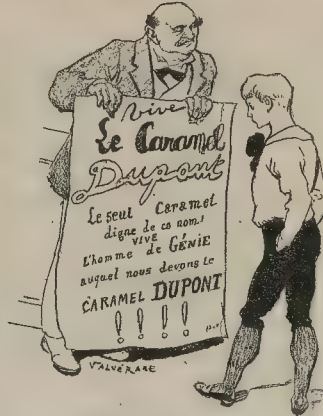 Vive
Le Caramel
Dupont
Le seul Caramel
digne de ce nom!
VIVE
L'homme de GÉNIE
auquel nous devons le
CARAMEL DUPONT
! ! ! !
VALVÉRANE